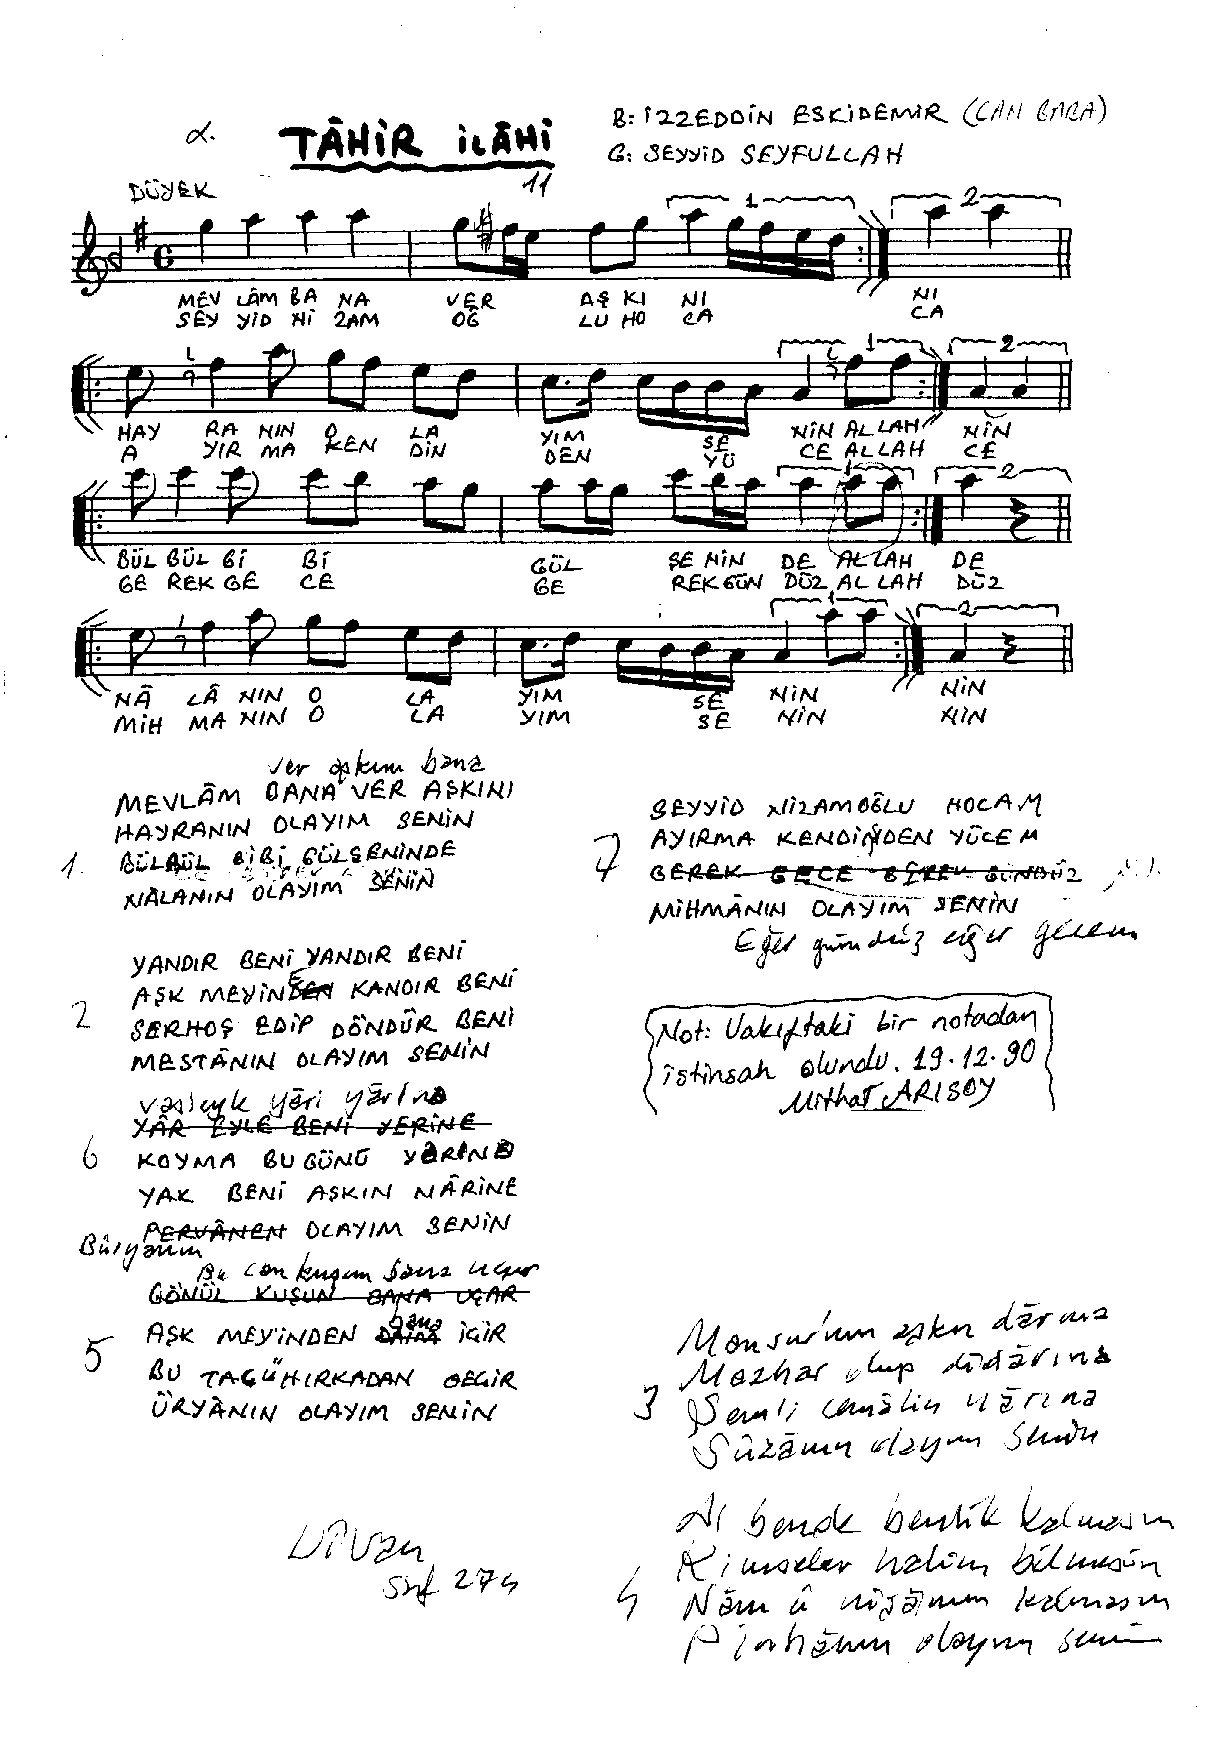 α.
TÂHİR İLÂHİ
11
B: İZZEDDİN ESKİDEMİR (CAN BABA)
G: SEYYİD SEYFULLAH
DÜYEK
1 2
MEV LÂM BA NA VER AŞ KI NI NI
SEY YİD Nİ ZAM OĞ LU HO CA CA
1 2
HAY RA NIN O LA YIM SE NİN ALLAH NİN
A YIR MA KEN DİN DEN YÜ CE ALLAH CE
1 2
BÜL BÜL Bİ Bİ GÜL ŞE NİN DE ALLAH DE
GE REK GE CE GE REK GÜN DÜZ ALLAH DÜZ
1 2
NÂ LÂ NIN O LA YIM SE NİN NİN
MİH MA NIN O LA YIM SE NİN NİN
ver aşkını bana
MEVLÂM BANA VER AŞKINI
HAYRANIN OLAYIM SENİN
1. BÜLBÜL BİBİ GÜLŞENİNDE
NÂLANIN OLAYIM SENİN
YANDIR BENİ YANDIR BENİ
2 AŞK MEYİNDEN KANDIR BENİ
SERHOŞ EDİP DÖNDÜR BENİ
MESTÂNIN OLAYIM SENİN
vasleyle yâri yârına
YÂR EYLE BENİ YERİNE
6 KOYMA BUGÜNÜ YARINA
YAK BENİ AŞKIN NÂRİNE
PERVÂNEN OLAYIM SENİN
Büryanın
Bu can kuşum sana uçar
GÖNÜL KUŞUN BANA UÇAR
5 AŞK MEYİNDEN bana İÇİR
BU TACÜHIRKADAN GEÇİR
ÜRYÂNIN OLAYIM SENİN
Divan
shf 274
SEYYİD NİZAMOĞLU HOCAM
7 AYIRMA KENDİNDEN YÜCEM
GEREK GECE GEREK GÜNDÜZ
MİHMÂNIN OLAYIM SENİN
Eğer gündüz eğer gecem
Not: Vakıftaki bir notadan
istinsah olundu. 19.12.90
Mithat ARISOY
Mansur'um aşkın dârına
Mazhar olup dîdârına
3 Şem'i cemâlin nârına
Sûzânın olayım senin
Al bende benlik kalmasın
Kimseler halim bilmesin
4 Nâm û nişânım kalmasın
Pinhânın olayım senin